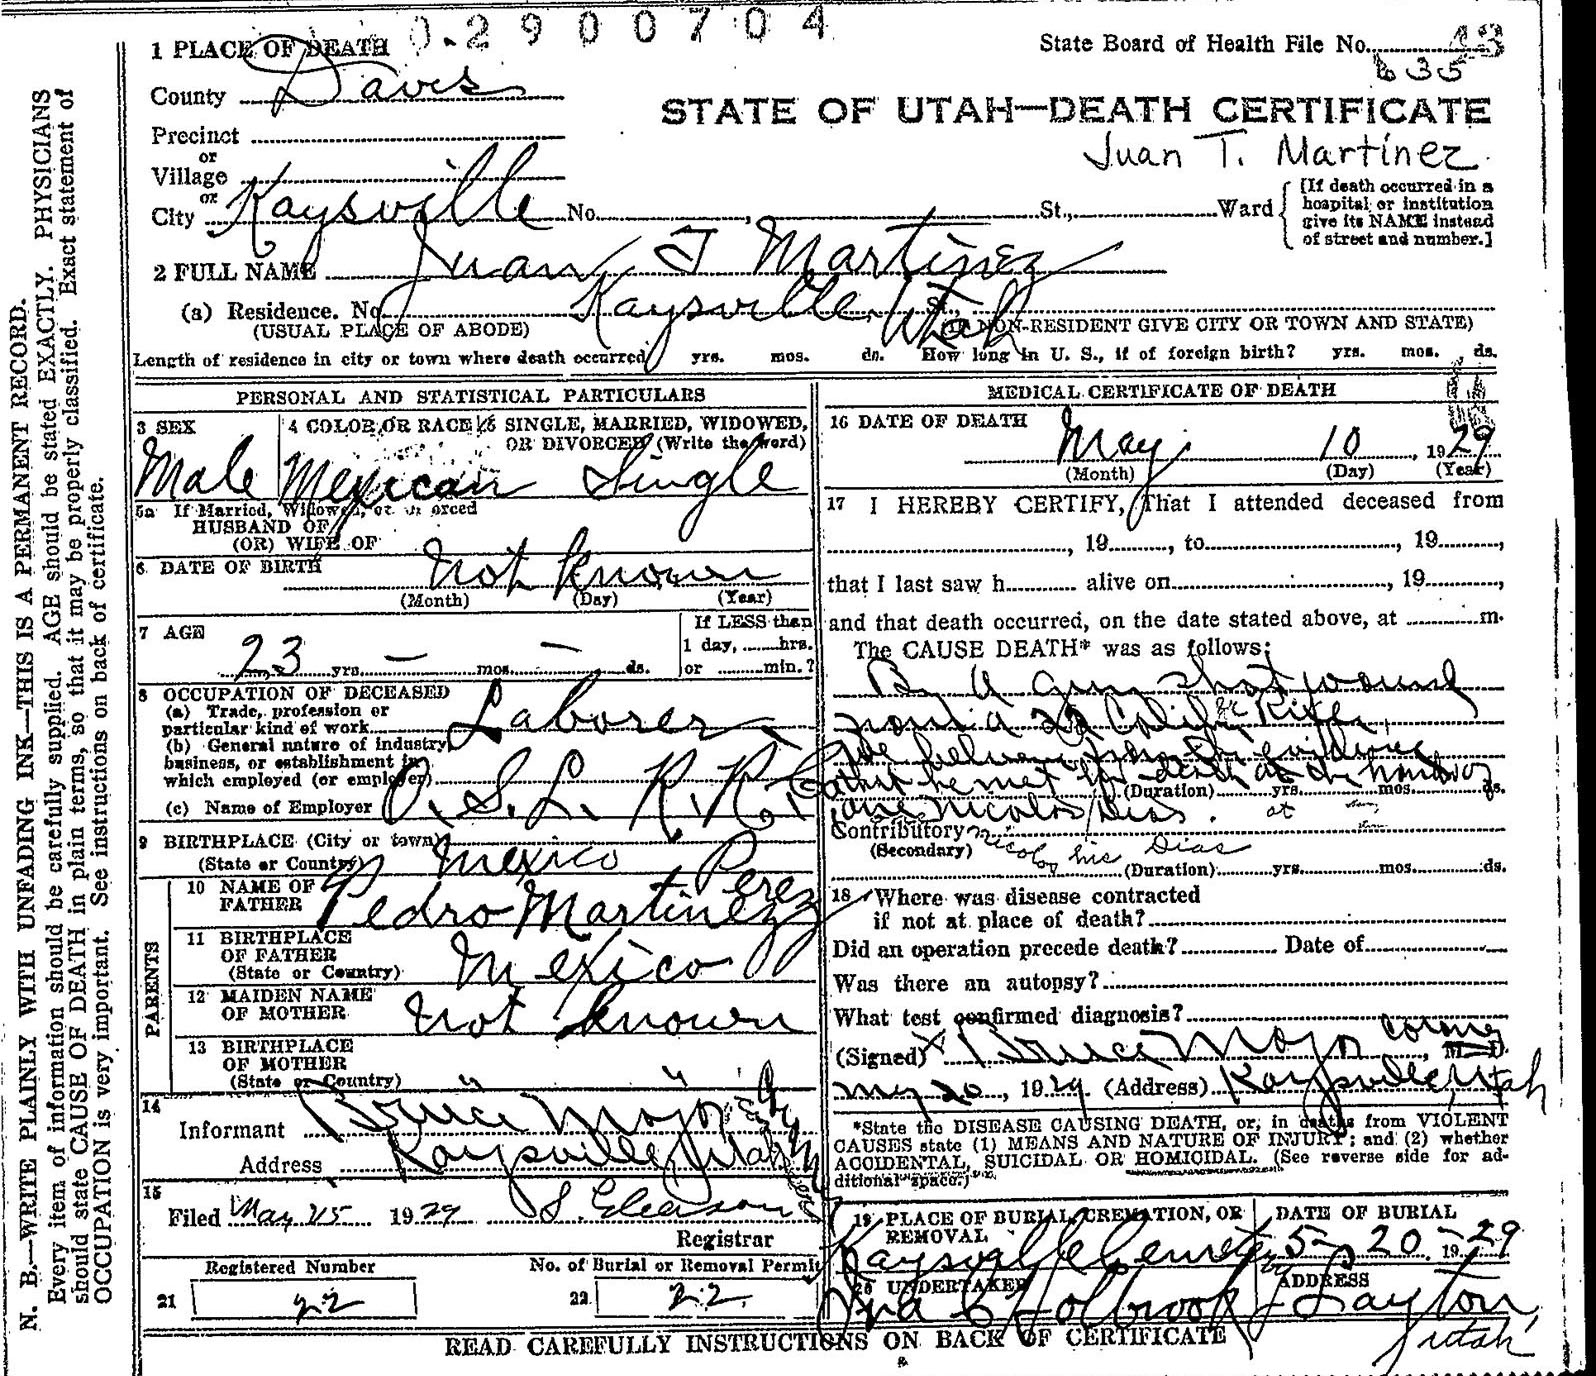 0.2900704
1 PLACE OF DEATH
State Board of Health File No. 43
635
County Davis
STATE OF UTAH—DEATH CERTIFICATE
Precinct
Juan T. Martinez
or
Village
or
City Kaysville No. , St., Ward
[If death occurred in a
hospital or institution
give its NAME instead
of street and number.]
2 FULL NAME Juan T Martinez
(a) Residence. No. Kaysville, Utah St.
(USUAL PLACE OF ABODE) (IF NON-RESIDENT GIVE CITY OR TOWN AND STATE)
Length of residence in city or town where death occurred yrs. mos. ds. How long in U. S., if of foreign birth? yrs. mos. ds.
PERSONAL AND STATISTICAL PARTICULARS
3 SEX
4 COLOR OR RACE
5 SINGLE, MARRIED, WIDOWED,
OR DIVORCED (Write the word)
Male Mexican Single
5a If Married, Widowed, or Divorced
HUSBAND OF
(OR) WIFE OF
6 DATE OF BIRTH Not known
(Month) (Day) (Year)
7 AGE
23 yrs. — mos. — ds.
If LESS than
1 day, hrs.
or min.?
8 OCCUPATION OF DECEASED
(a) Trade, profession or
particular kind of work Laborer
(b) General nature of industry,
business, or establishment in
which employed (or employer)
(c) Name of Employer O. S. L. R. R. Co
9 BIRTHPLACE (City or town)
(State or Country) Mexico
PARENTS
10 NAME OF
FATHER Pedro Martinez Perez
11 BIRTHPLACE
OF FATHER
(State or Country) Mexico
12 MAIDEN NAME
OF MOTHER Not known
13 BIRTHPLACE
OF MOTHER
(State or Country) " "
14
Informant Bruce Major
Address Kaysville, Utah
15
Filed May 25 1929 S. Gleason
Registrar
Registered Number
21 22
No. of Burial or Removal Permit
22 22
MEDICAL CERTIFICATE OF DEATH
16 DATE OF DEATH
May 10, 1929
(Month) (Day) (Year)
17 I HEREBY CERTIFY, That I attended deceased from
, 19 , to , 19 ,
that I last saw h alive on , 19 ,
and that death occurred, on the date stated above, at m.
The CAUSE DEATH* was as follows:
By a gun shot wound
a Rifle,
We believe from the evidence
that he met his death at the hands of
(Duration) yrs. mos. ds.
one Nicolos Dias. at
Contributory
(Secondary) Nicolos his Dias
(Duration) yrs. mos. ds.
18 Where was disease contracted
if not at place of death?
Did an operation precede death? Date of
Was there an autopsy?
What test confirmed diagnosis?
(Signed) X Bruce Major Coroner, M. D.
May 20, 1929 (Address) Kaysville, Utah
*State the DISEASE CAUSING DEATH, or, in deaths from VIOLENT
CAUSES state (1) MEANS AND NATURE OF INJURY; and (2) whether
ACCIDENTAL, SUICIDAL OR HOMICIDAL. (See reverse side for ad-
ditional space.)
19 PLACE OF BURIAL, CREMATION, OR
REMOVAL
Kaysville Cemetery
DATE OF BURIAL
5-20, 19-29
20 UNDERTAKER
Ira C Holbrook
ADDRESS
Layton,
Utah
READ CAREFULLY INSTRUCTIONS ON BACK OF CERTIFICATE
N. B.—WRITE PLAINLY WITH UNFADING INK—THIS IS A PERMANENT RECORD.
Every item of information should be carefully supplied. AGE should be stated EXACTLY. PHYSICIANS
should state CAUSE OF DEATH in plain terms, so that it may be properly classified. Exact statement of
OCCUPATION is very important. See instructions on back of certificate.